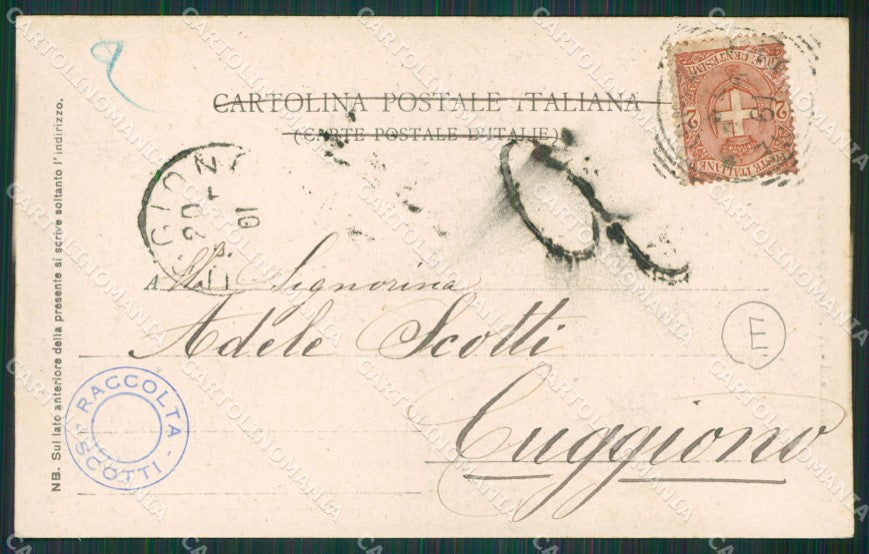 CARTOLINA POSTALE ITALIANA
(CARTE POSTALE D'ITALIE)
CENTESIMI
2 2
POSTE ITALIANE
20
01
Alla Signorina
Adele Scotti
Cuggiono
E
RACCOLTA
SCOTTI
NB. Sul lato anteriore della presente si scrive soltanto l'indirizzo.
CARTOLINOMANIA